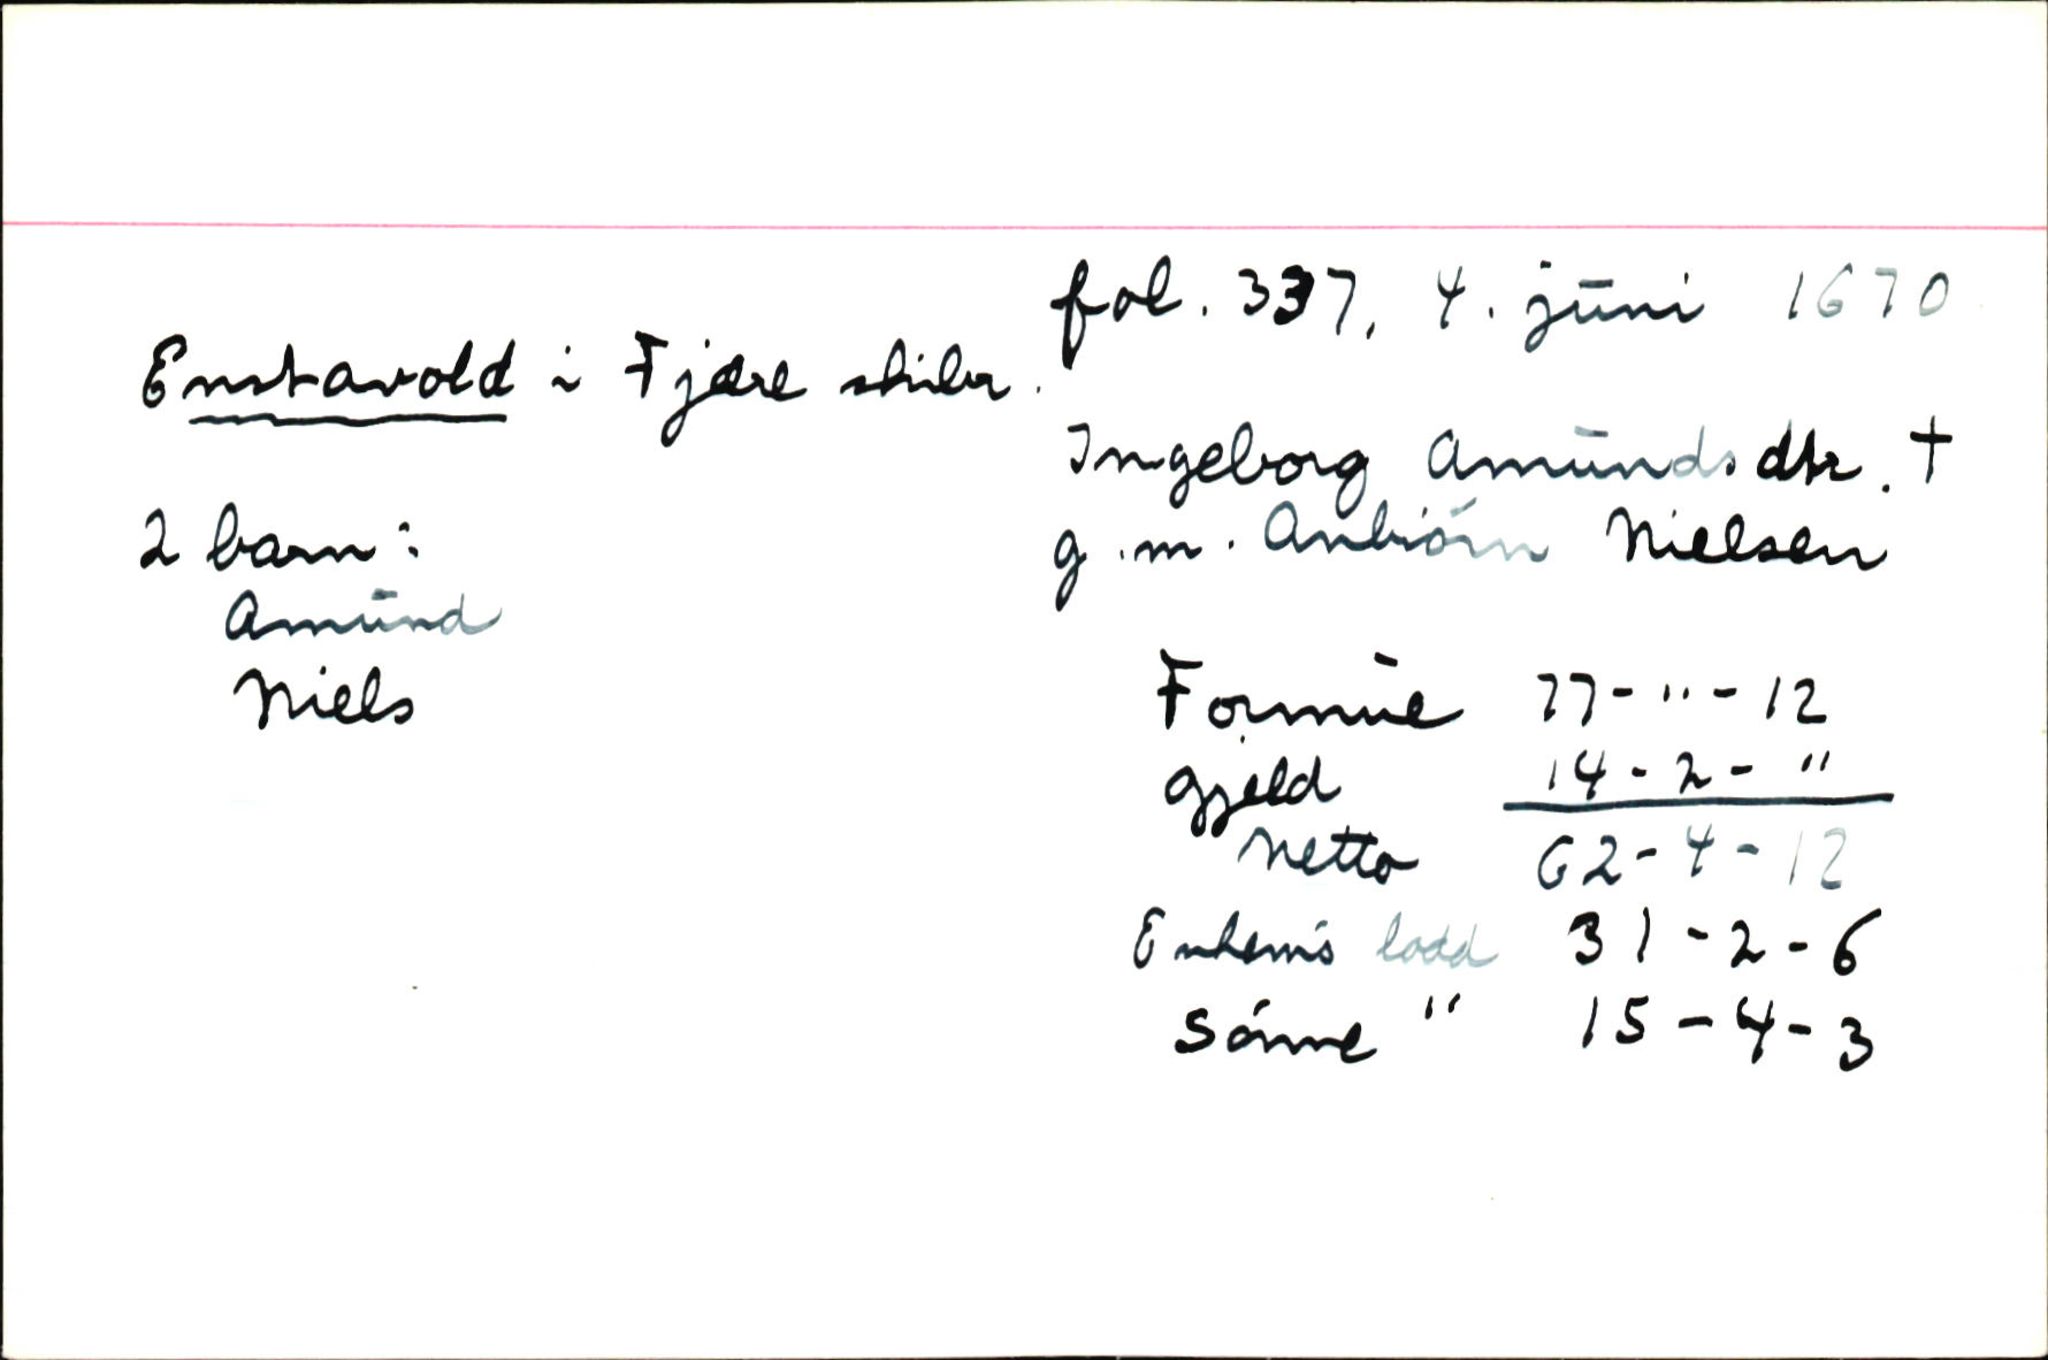 fol. 337, 4. juni 1670
Enstavold i Fjære skibr.
Ingeborg Amundsdtr. †
g.m. Anbiörn Nielsen
2 barn:
Amund
Niels
Formue 77-"-12
Gjeld 14-2-"
Netto 62-4-12
Enkem's lodd 31-2-6
Sönne " 15-4-3